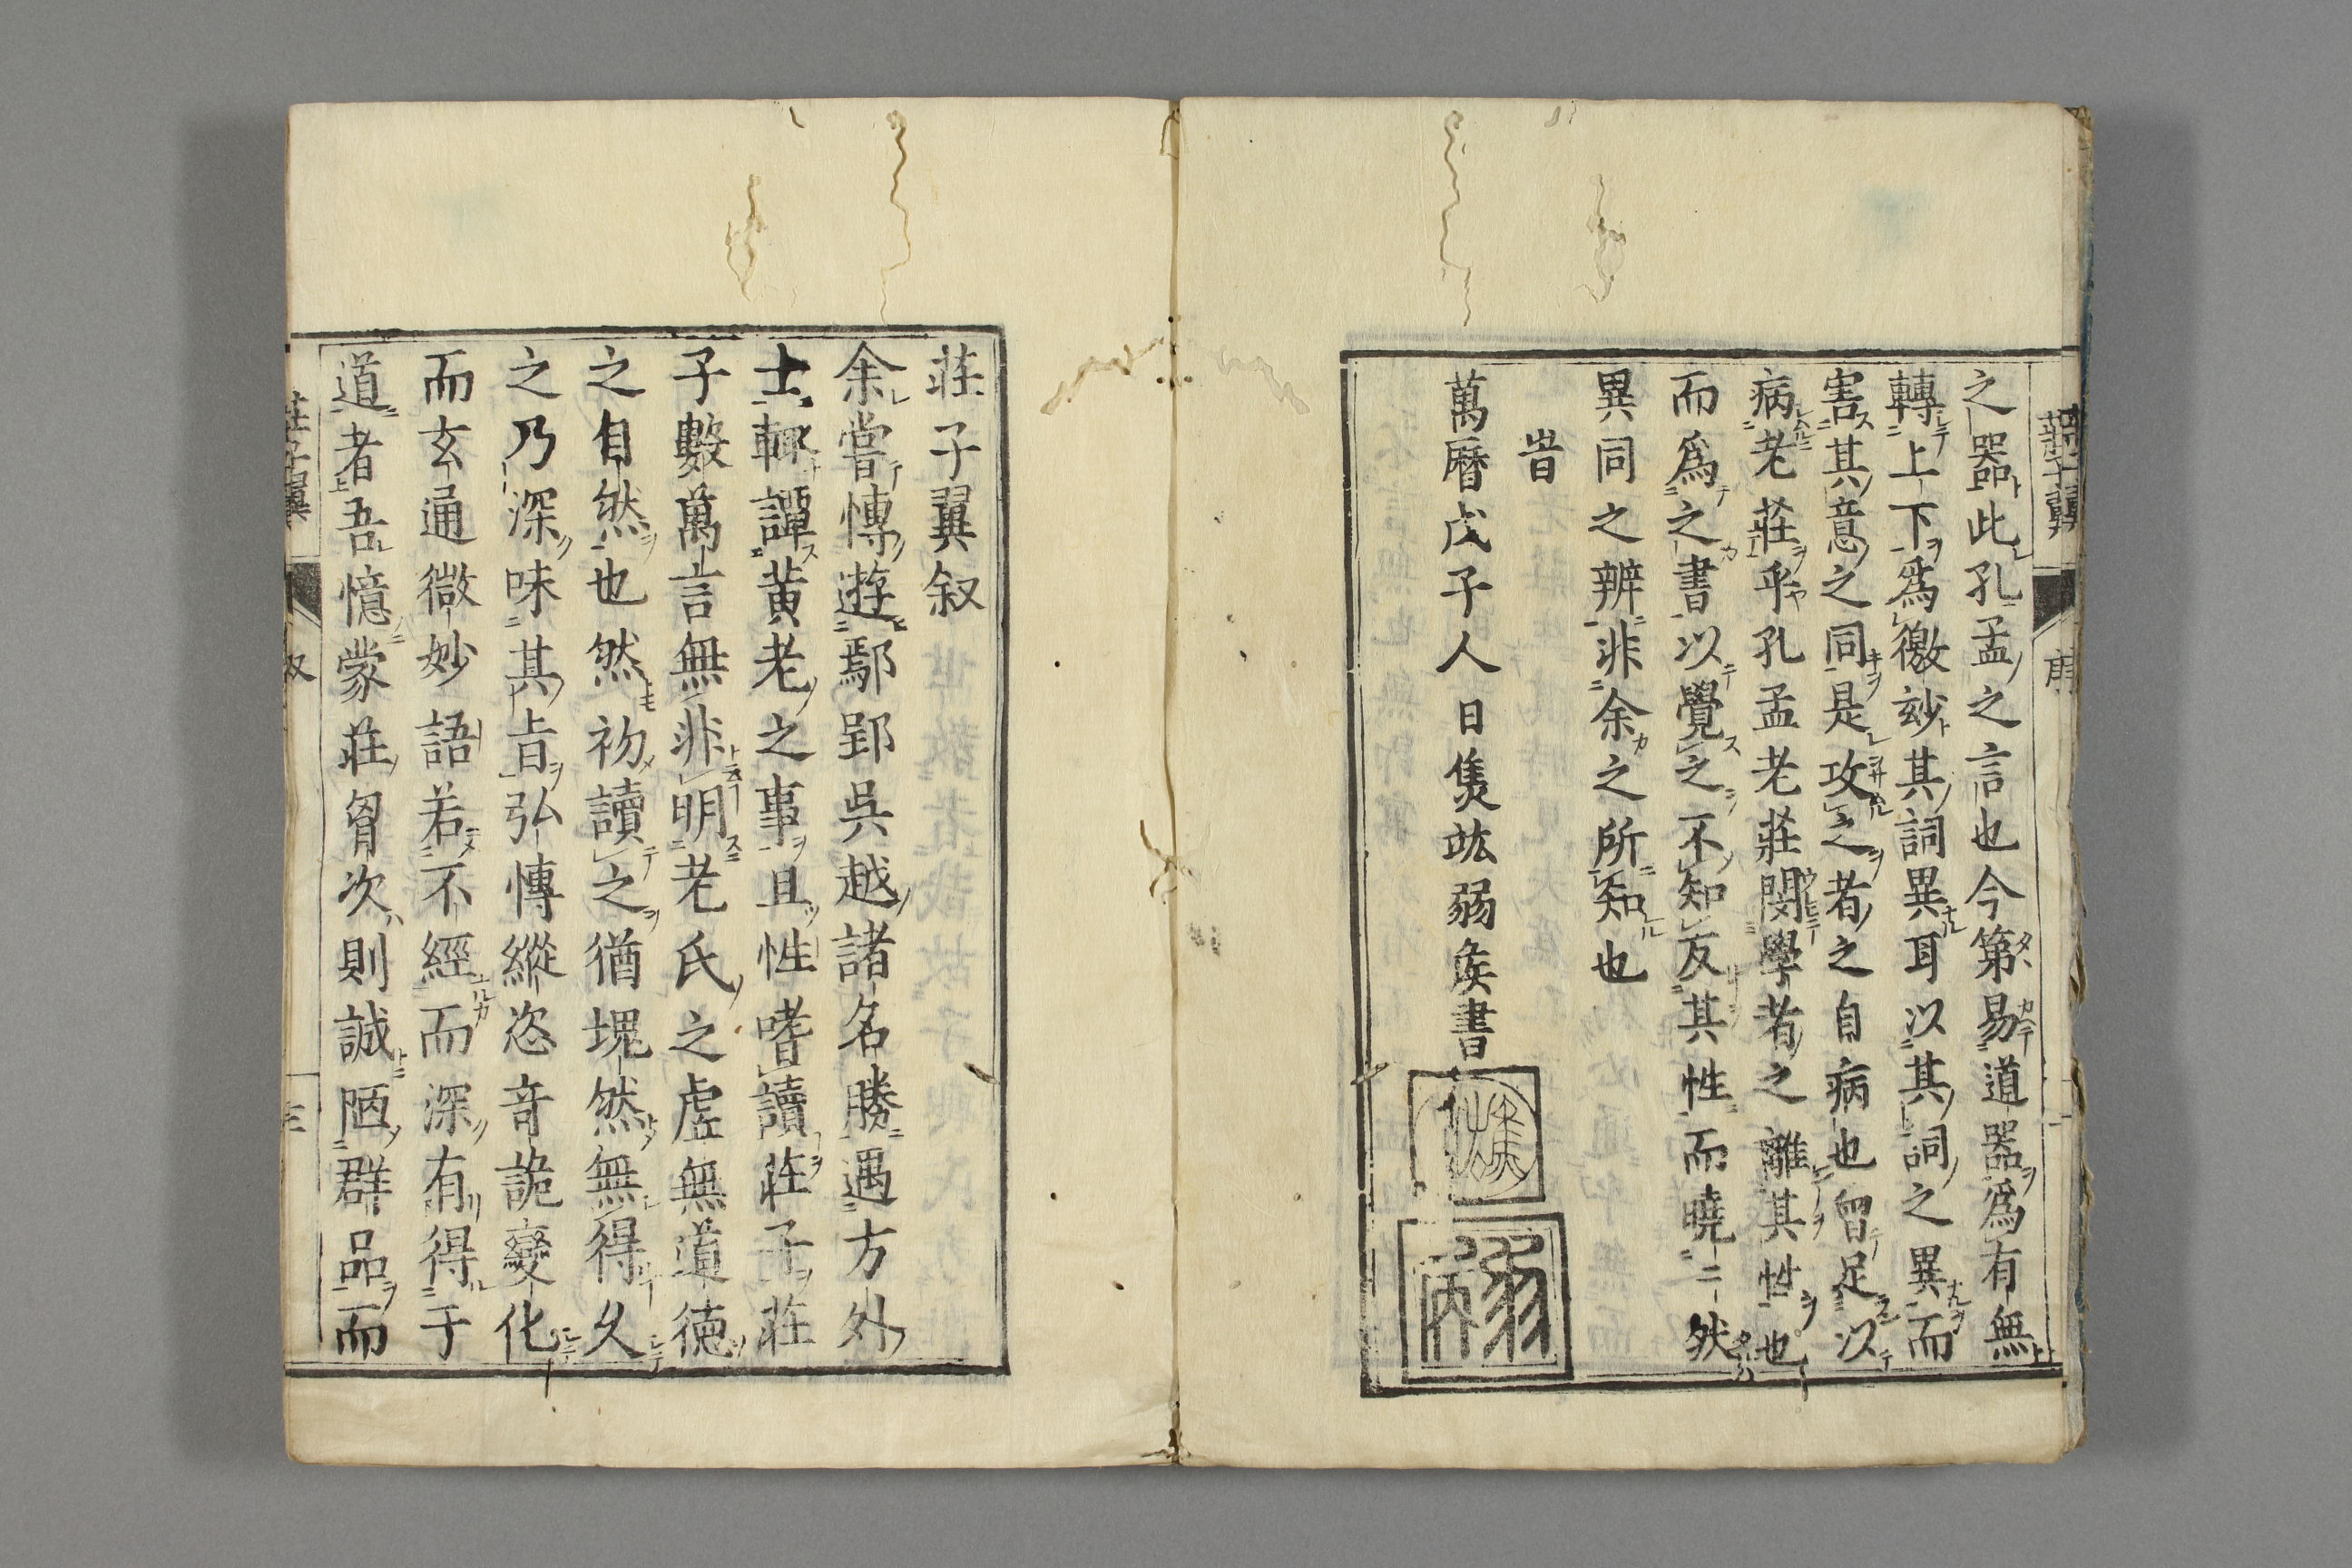 之器此孔孟之言也今第易道器爲有無
轉上下爲徼玅其詞異耳以其詞之異而
害其意之同是攻之者之自病也曾足以
病老莊乎孔孟老莊閔學者之離其性也
而爲之書以覺之不知反其性而曉二然
異同之辨非余之所知也
旹
萬曆戊子人日焦竑弱矦書
焦竑
弱矦
莊子翼叙
余嘗慱遊鄢郢吳越諸名勝遇方外
士輒譚黃老之事且性嗜讀莊子莊
子數萬言無非明老氏之虛無道徳
之自然也然初讀之猶塊然無得久
之乃深味其旨弘慱縱恣音詭變化
而玄通微妙語若不經而深有得于
道者吾憶蒙莊胷次則誠陋群品而
莊子翼
叙
三